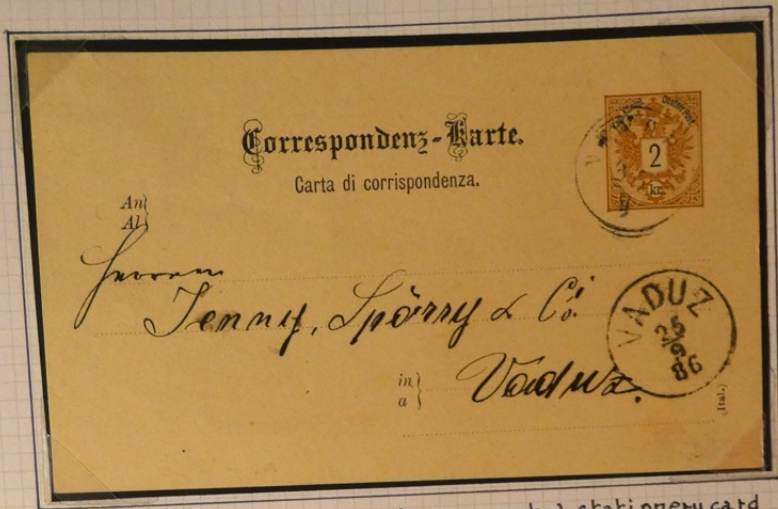 Correspondenz-Karte.
Carta di corrispondenza.
2
kr.
An
Al
Herren
Jenny, Spörry & Co.
in
a
Vaduz.
VADUZ
25
9
86
(Ital.)
stationery card